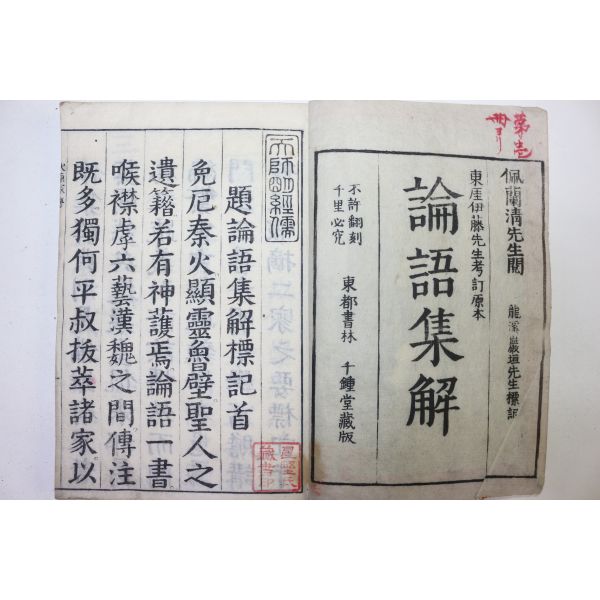 第壱
佩蘭清先生閲
龍溪巖垣先生標記
東厓伊藤先生考訂原本
論語集解
不許翻刻
千里必究
東都書林 千鍾堂藏版
天師明經儒
題論語集解標記首
免厄秦火顯靈魯壁聖人之
遺籍若有神護焉論語一書
喉襟虖六藝漢魏之間傳注
既多獨何平叔拔萃諸家以